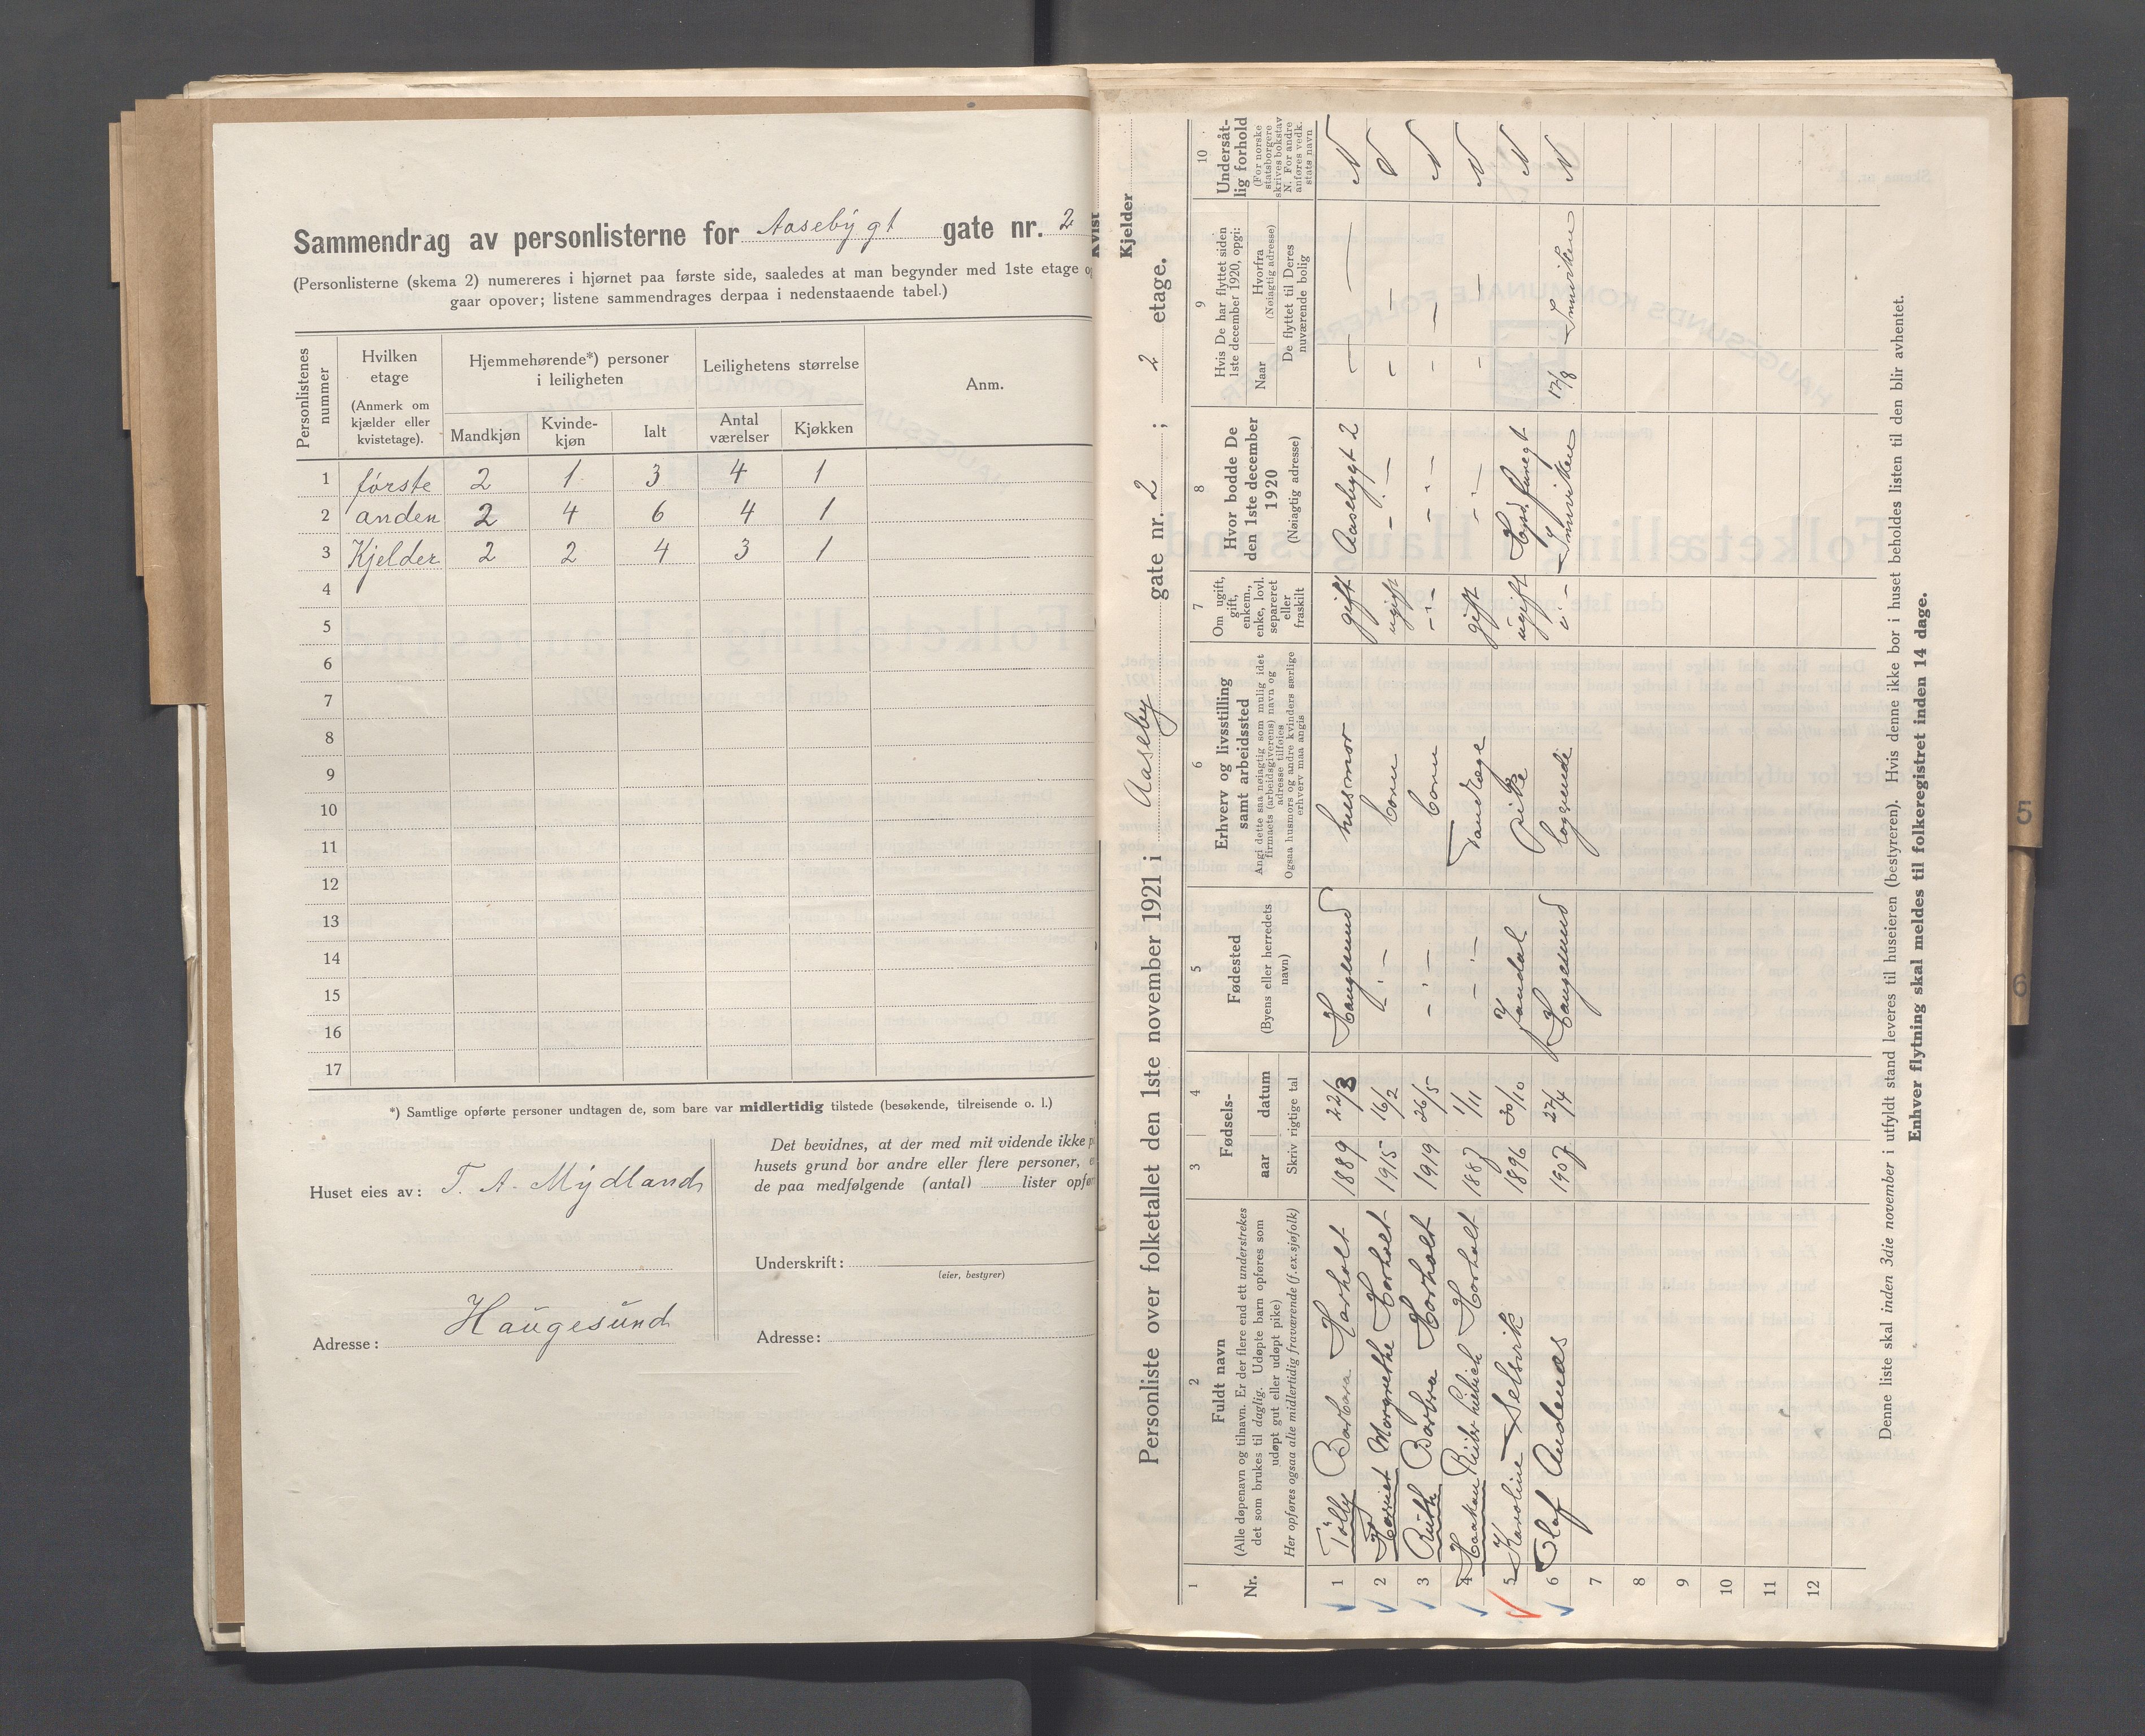 Sammendrag av personlisterne for Aasebygt gate nr. 2
(Personlisterne (skema 2) numereres i hjørnet paa første side, saaledes at man begynder med 1ste etage
gaar opover; listene sammendrages derpaa i nedenstaaende tabel.)
Personlistenes nummer
Hvilken etage
(Anmerk om kjælder eller kvistetage).
Hjemmehørende*) personer i leiligheten
Leilighetens størrelse
Anm.
Mandkjøn Kvinde-kjøn Ialt Antal værelser Kjøkken
1 første 2 1 3 4 1
2 anden 2 4 6 4 1
3 Kjelder 2 2 4 3 1
4
5
6
7
8
9
10
11
12
13
14
15
16
17
*) Samtlige opførte personer undtagen de, som bare var midlertidig tilstede (besøkende, tilreisende o. l.)
Huset eies av: T. A. Mydland
Adresse: Haugesund
Det bevidnes, at der med mit vidende ikke
husets grund bor andre eller flere personer,
de paa medfølgende (antal) lister
Underskrift:
(eier, bestyrer)
Adresse:
Kvist
Kjelder
Personliste over folketallet den 1ste november 1921 i Aaseby gate nr. 2 ; 2 etage.
1 2 3 4 5 6 7 8 9 10
Nr.
Fuldt navn
(Alle døpenavn og tilnavn. Er der flere end ett understrekes
det som brukes til daglig. Udøpte barn opføres som
udøpt gut eller udøpt pike)
Her opføres ogsaa alle midlertidig fraværende (f.ex.sjøfolk)
Fødsels-
aar datum
Skriv rigtige tal
Fødested
(Byens eller herredets navn)
Erhverv og livsstilling
samt arbeidssted
Angi dette saa nøiagtig som mulig idet
firmaets (arbeidsgiverens) navn og
adresse tilføies
Ogsaa husmors og andre kvinders særlige
erhverv maa angis
Om ugift, gift, enkem., enke, lovl. separeret eller fraskilt
Hvor bodde De
den 1ste december
1920
(Nøiagtig adresse)
Hvis De har flyttet siden
1ste december 1920, opgi:
Naar
Hvorfra
(Nøiagtig adresse)
De flyttet til Deres
nuværende bolig
Undersåt-
lig forhold
(For norske
statsborgere
skrives bokstav
N. For andre
anføres vedk.
stats navn
1 Tolly Barbara Horholt 1889 22/3 Haugesund husmor gift Aasebygt 2 — — N
2 Harriet Margrethe Horholt 1915 16/2 - " - barn ugift - " - - - N
3 Ruth Barbra Horholt 1919 26/5 - " - barn - " - - " - - - N
4 Haakon Horholt 1887 1/11 - " - Tandlæge gift - " - - - N
5 Karoline Selsvik 1896 30/10 Jondal Pike ugift N
6 Olaf Andenæs 1907 27/4 Haugesund loggende - " - 12/8 N
7
8
9
10
11
12
Denne liste skal inden 3die november i utfyldt stand leveres til huseieren (bestyreren). Hvis denne ikke bor i huset beholdes listen til den blir avhentet.
Enhver flytning skal meldes til folkeregistret inden 14 dage.
5
6